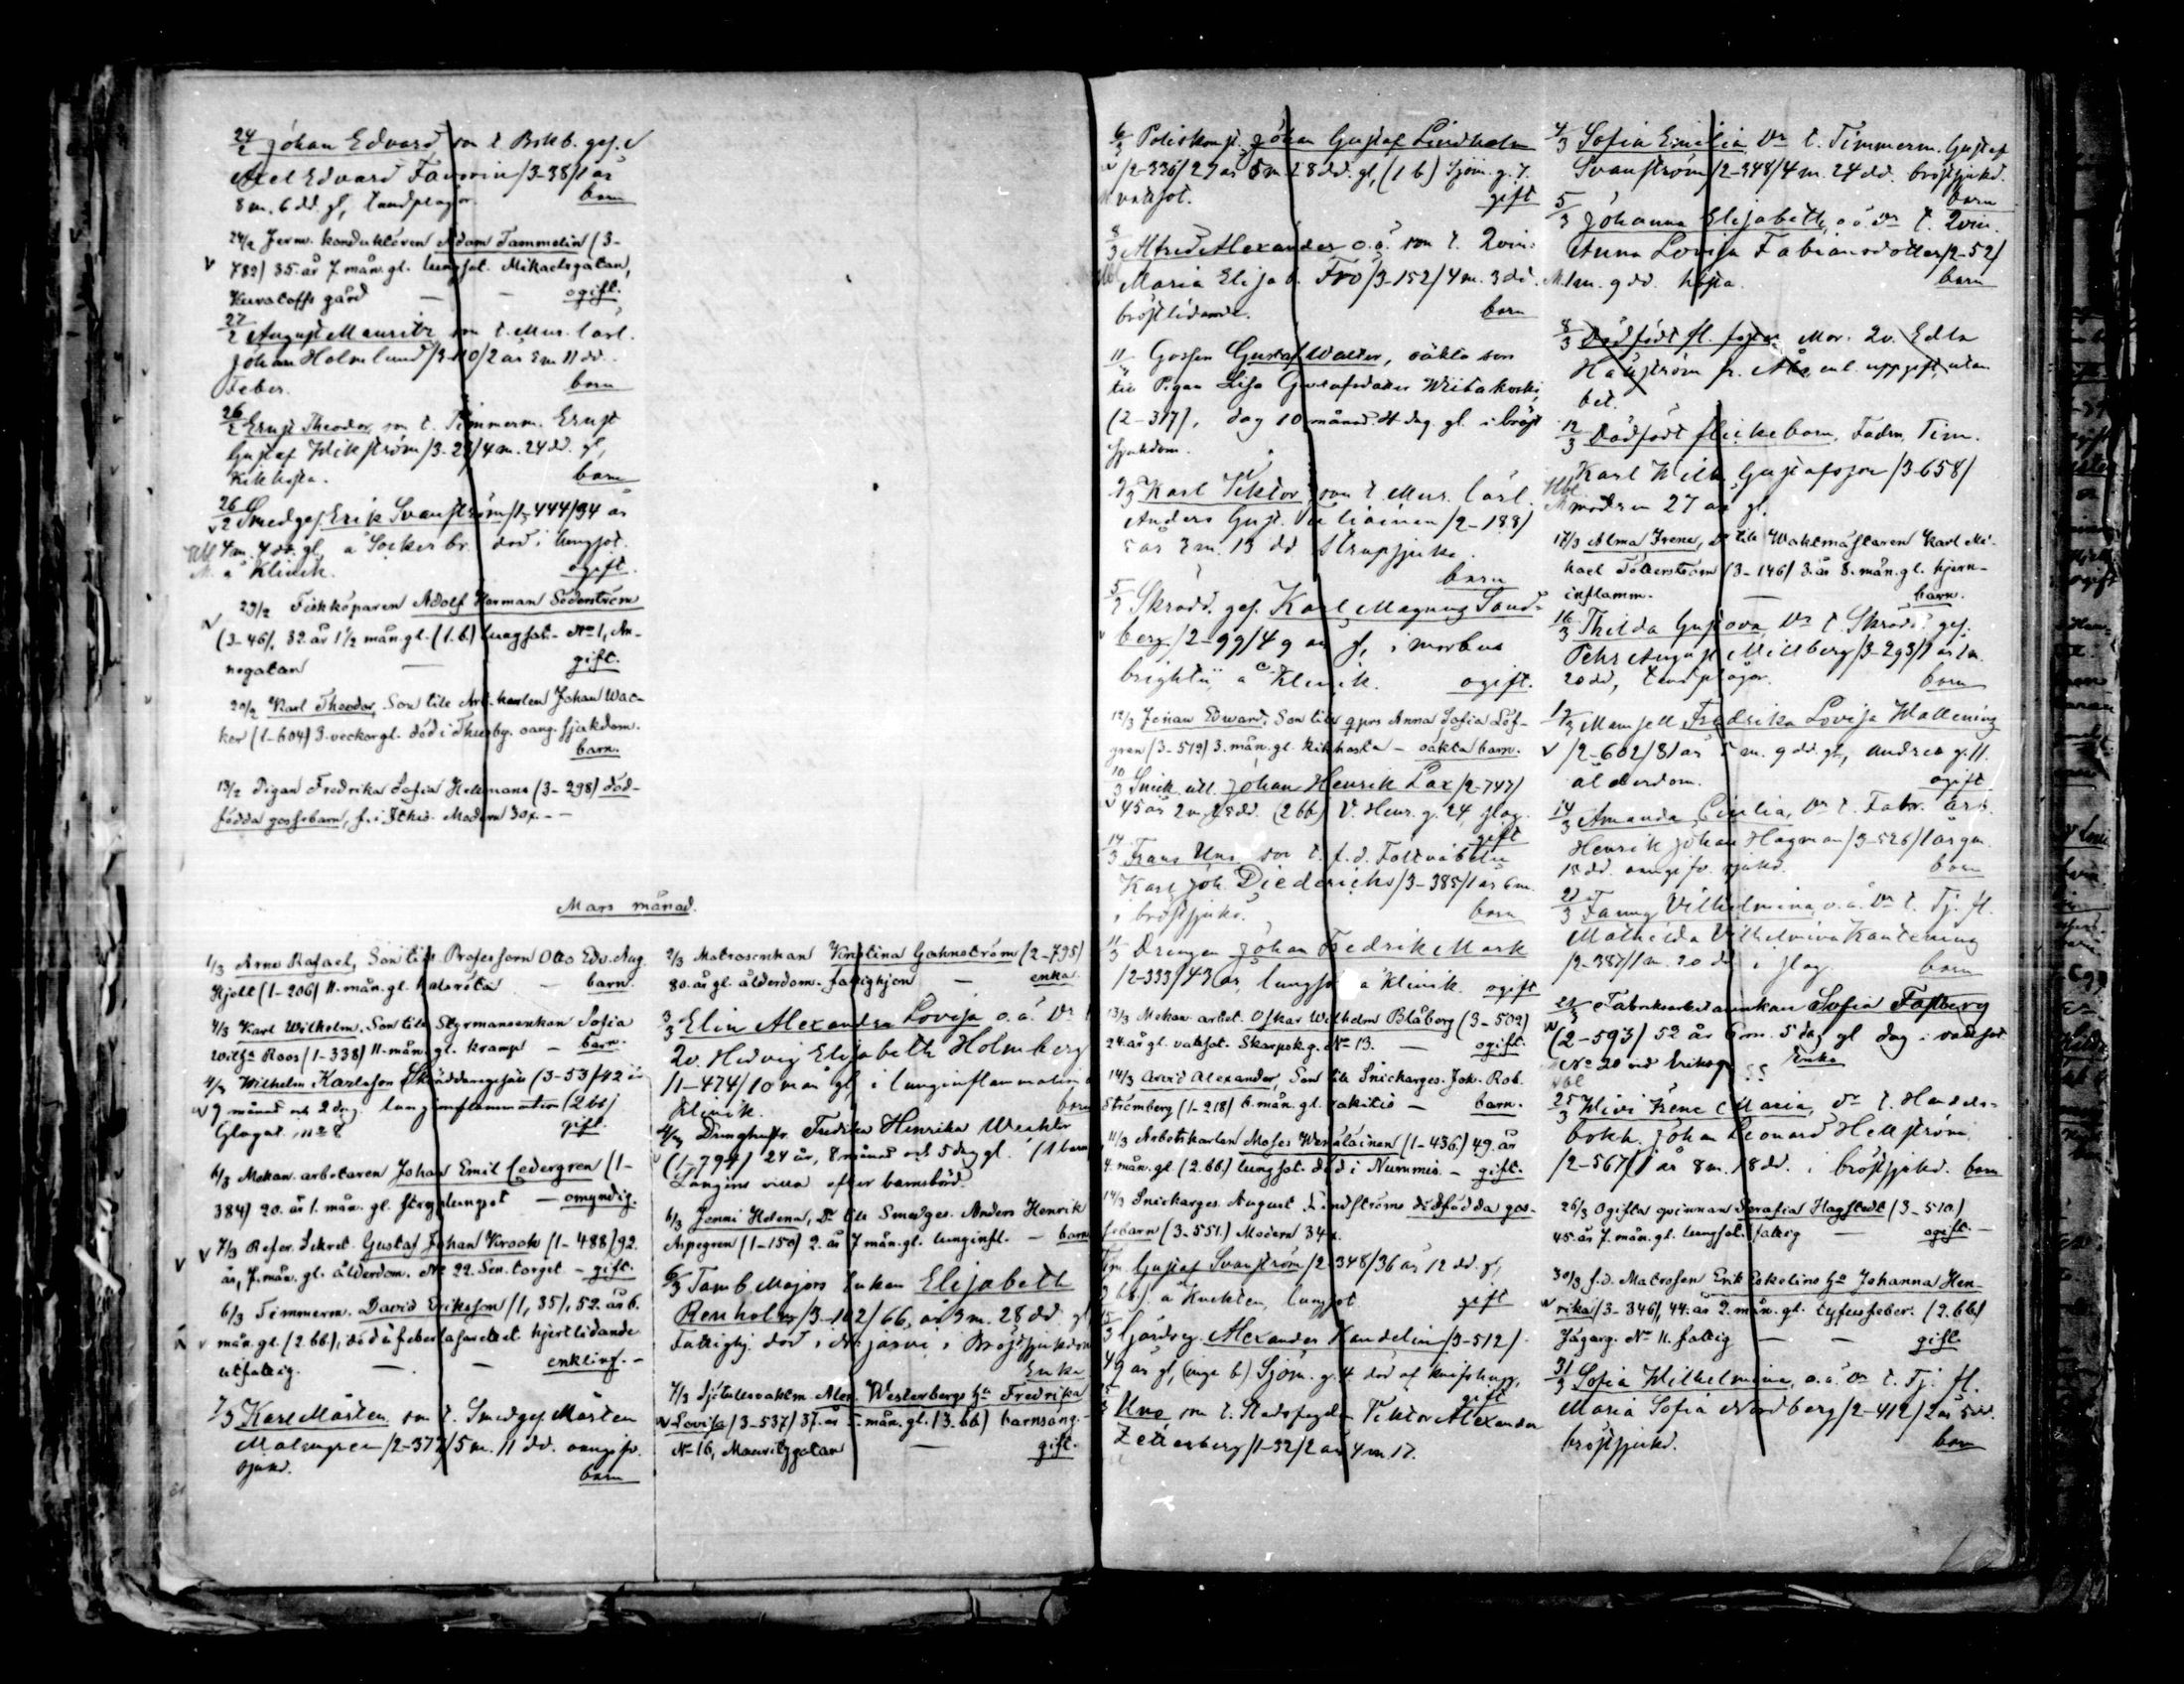 24/2 Johan Edvard son t. Bokb. ges.
Axel Edvard Favorin /3-38/ 1 år
8 m. 6 dd. gl, tandplågor. barn
24/2 Jernv. konduktören Adam Tammelin (3-
789) 35 år 7 mån. gl. lungsot. Mikaelsgatan,
gård — — ogift.
27/2 August Mauritz son t. Mur. lärl.
Johan Holmlund /3-110/ 2 år 3 m 11 dd.
Feber. barn
26/2 Ernst Theodor son t. Timmerm. Ernst
Gustaf Wikström /3-29/ 4 m. 24 dd. gl,
Kikhosta. barn
26/2 Smedges. Erik Svanström /1-444/ 34 år
4 m. 4 dd. gl, a Socker br. död i lungsot.
a Klinik. ogift.
29/2 Fiskköparen Adolf Herman Söderström
(3-46), 32 år 1 1/2 mån. gl. (1. b.) lungsot. No 1, An-
negatan — gift.
20/2 Karl Theodor, Son till Arb. karlen Johan Wac-
ker (1-604) 3 veckor gl. död i Thusby. oang. sjukdom.
barn.
13/2 Pigan Fredrika Sofia Hellmans (3-298) död-
födda gossebarn, f. i Modern 30 —
Mars månad.
1/3 Arno Rafael, Son till Professorn Otto Edv. Aug.
Hjelt (1-206) 11. mån. gl. halsröta — barn.
4/3 Karl Wilhelm, Son till Styrmansenkan Sofia
Roos (1-338) 11 mån. gl. kramp — barn.
4/3 Wilhelm Karlsson Skräddaregesäll (3-53) 42 år
9 månad och 2 dag. lunginflammation (2 bb)
Glogat. no 8 gift.
6/3 Mekan. arbetaren Johan Emil Cedergren (1-
384) 20. år 1. mån. gl. — omyndig.
7/3 Refer. Sekret. Gustaf Johan Krook (1-488) 92.
år, 7. mån. gl. ålderdom. No 22. Sen. torget — gift.
6/3 Timmerm. David Eriksson (1, 35), 52. år 6.
mån. gl. (2. bb), död å feberlasarettet hjertlidande
utfattig. — — enkling. —
7/3 Karl Mårten son t. Smedges. Mårten
Malmgren /2-377/ 5 m. 11 dd. oangifv.
sjukd. barn
2/3 Matrosenkan Kristina Gahnström (2-795)
80. år gl. ålderdom. fattighjon — enka.
3/3 Elin Alexandra Lovisa o.ä. dr t
Qv. Hedvig Elisabeth Holmberg
/1-474/ 10 mån gl, i lunginflammation å
Klinik. barn
4/3 Drenghustr. Fredika Henrika Weckter
(1-794) 24 år, 8 månad och 5 dag gl. (1 barn)
Längins villa efter barnsbörd.
6/3 Jenni Helena, Dr till Smedges. Anders Henrik
Aspegren (1-150) 2. år 7 mån. gl. lunginfl. — barn
6/3 Tamb. Majors Enkan Elisabeth
Renholm /3-102/ 66 år 3 m. 28 dd. gl
Fattighj. död i i Bröstsjukdom
Enka
7/3 Sjötullsvaktm. Alex. Westerbergs hu Fredrika
Lovisa (3-537) 37. år mån. gl. (3. bb) barnsäng. —
No 16, Mauritzgatan — gift.
6/3 Poliskonst. Johan Gustaf Lindholm
/2-336/ 29 år 5 m 28 dd. gl, (1 b.) Sjöm. g. 7.
vatsot. gift
8/3 Alfred Alexander o.ä. son t. Qvin.
Maria Elisab. Frö /3-152/ 4 m. 3 dd.
bröstlidande. barn
11/ Gossen Gustaf Walter, oäkta son
till Pigan Lisa Gustafsdotter Wiitakoski,
(2-317), dog 10 månad. 4 dag. gl. i bröst
sjukdom.
9/3 Karl Viktor son t. Mur. lärl.
Anders Gust. /2-188/
5 år 3 m. 13 dd Strupsjuka.
barn
5/2 Skrädd. ges. Karl Magnus Sand-
berg /2-99/ 49 år gl, i morbus
brightii, a Klinik. ogift.
12/3 Johan Edward, Son till qprs Anna Sofia Löf-
gren (3-519) 3. mån. gl. kikhosta — oäkta barn.
10/3 Snick. utl. Johan Henrik Lax /2-747/
45 år 2 m, 25 dd. (2 bb) V. Henr. g. 24, slag.
gift
14/3 Frans Uno son t. f.d.
Karl Joh. Diederichs /3-385/ 1 år 6 m.
i bröstsjukd. barn
11/3 Drengen Johan Fredrik Mark
/2-333/ 43 år, lungsot a Klinik. ogift
13/3 Mekan. arbet. Oskar Wilhelm Blåberg (3-502)
24. år gl. vatsot. Skarpsk. g. No 13. — ogift.
14/3 Arvid Alexander, Son till Snickarges. Joh. Rob.
Strömberg (1-218) 6. mån. gl. rakitis — barn.
11/3 Arbetskarlen Moses Wenäläinen (1-436.) 49. år
4. mån. gl. (2. bb.) lungsot. död i Nummis. — gift.
14/3 Snickarges. August Lindströms dödfödda gos-
sebarn (3-551.) Modern 34
Tim. Gustaf Svanström /2-348/ 36 år 12 dd. gl,
bb.) a Knekten, lungsot gift
15/3 Gårdseg. Alexander Kandelin /3-512/
49 år gl, (inga b.) Sjöm. g. 4 död af knifshugg,
gift
Uno son t. Stadsfogden Viktor Alexander
Zetterberg /1-32/ 2 år 4 m. 17.
4/3 Sofia Emilia Dr t. Timmerm. Gustaf
Svanström /2-348/ 4 m. 24 dd. bröstsjukd.
barn
5/3 Johanna Elisabeth, o.ä. Dr t. Qvin.
Anna Lovisa Fabiansdotter /2-52/
1 m. 9 dd. hosta. barn
8/3 Dödfödt fl. Mor. Qv. Edla
fr. Åbo, enl. uppgift, utan
bet.
12/3 Dödfödt flickebarn, Fadr. Tim.
Karl Wilh. Gustafsson /3-658/
modren 27 år gl.
17/3 Alma Irene, Dr till Waktmästaren Karl Mi-
kael Tötterström (3-146) 3. år 8. mån. gl. hjern-
inflamm. — barn.
16/3 Thilda Gustava Dr t. Skrädd. ges.
Pehr August Millberg /3-293/ 1 år 1 m.
20 dd, tandplågor. barn
19/3 Mamsell Fredrika Lovisa Wallening
/2-602/ 81 år 5 m. 9 dd. gl, Andrea g. 11.
ålderdom. ogift
14/3 Amanda Cecilia, Dr t. Fabr. arb.
Henrik Johan Hagman /3-526/ 1 år 9 m.
15 dd. oangifv. sjukd. barn
21/3 Fanny Vilhelmina, o.ä. Dr t. Tj. fl.
Mathilda Vilhelmina Kantening
/2-387/ 1 m. 20 dd i slag. barn
21/3 Fabriksarbetarinkan Sofia Fastberg
(2-593) 52 år 6 m. 5 dag gl dog i vattsot
No 20 vid Eriksg. Enka
25/3 Wivi Irene Maria, Dr t. Handels-
bokh. Johan Leonard Hellström
/2-567/ 1 år 8 m. 18 dd. i bröstsjukd. barn
26/3 Ogifta qvinnan Serafia Hagstedt (3-510.)
45. år 7. mån. gl. lungsot. fattig — ogift. —
30/3 f.d. Matrosen Erik Eskelins hu Johanna Hen-
rika (3-346), 44. år 2. mån. gl. tyfusfeber. (2. bb)
Jägarg. No 11. fattig — — gift.
31/3 Sofia Wilhelmina, o.ä. Dr t. Tj. fl.
Maria Sofia Nordberg /2-412/ 2 år 5 dd.
bröstsjukd. barn